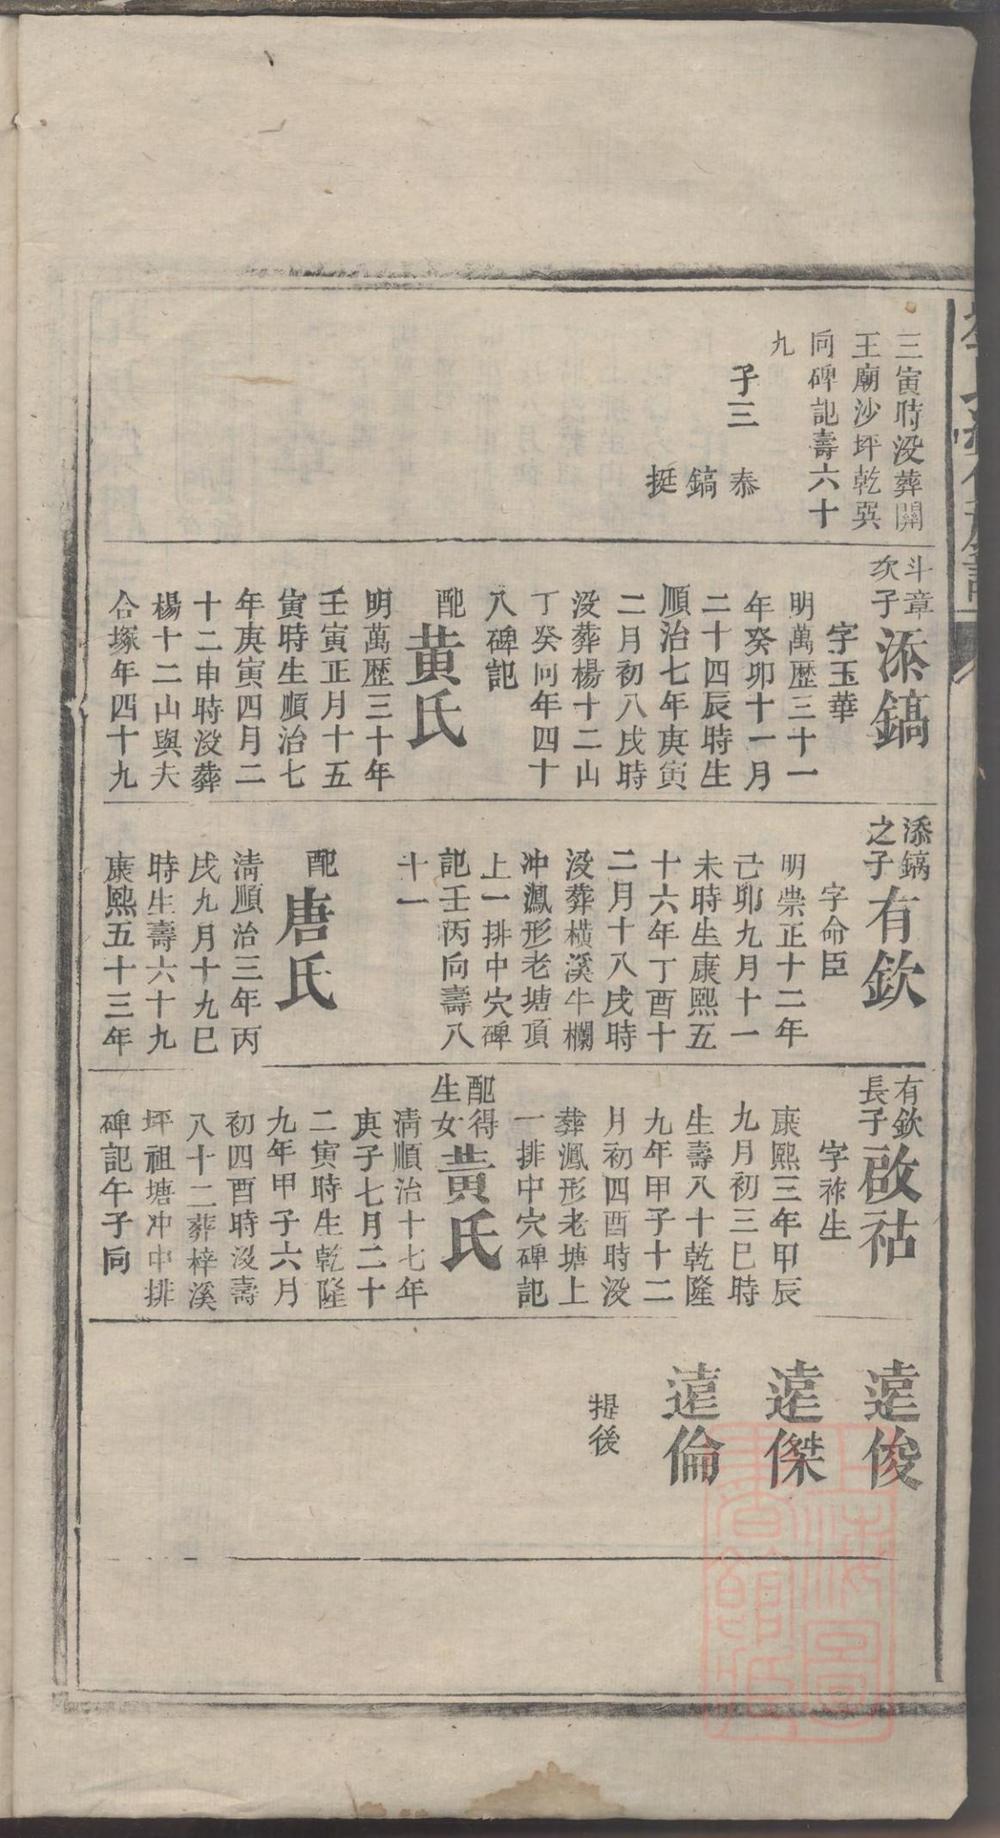 三寅時没葬關
王廟沙坪乾巽
向碑記壽六十
九
子三
泰
鎬
挺
斗章
次子
添鎬
字玉華
明萬歷三十一
年癸卯十一月
二十四辰時生
順治七年庚寅
二月初八戌時
没葬楊十二山
丁癸向年四十
八碑記
配
黃氏
明萬歷三十年
壬寅正月十五
寅時生順治七
年庚寅四月二
十二申時没葬
楊十二山與夫
合塚年四十九
添鎬
之子
有欽
字命臣
明崇正十二年
己卯九月十一
未時生康熙五
十六年丁酉十
二月十八戌時
没葬橫溪牛欄
冲鳳形老塘頂
上一排中穴碑
記壬丙向壽八
十一
配
唐氏
淸順治三年丙
戌九月十九巳
時生壽六十九
康熙五十三年
有欽
長子
啟祜
字祚生
康熙三年甲辰
九月初三巳時
生壽八十乾隆
九年甲子十二
月初四酉時没
葬鳳形老塘上
一排中穴碑記
配得
生女
黃氏
淸順治十七年
庚子七月二十
二寅時生乾隆
九年甲子六月
初四酉時没壽
八十二葬梓溪
坪祖塘冲中排
碑記午子向
遠俊
遠傑
遠倫
提後
上海圖
書館藏